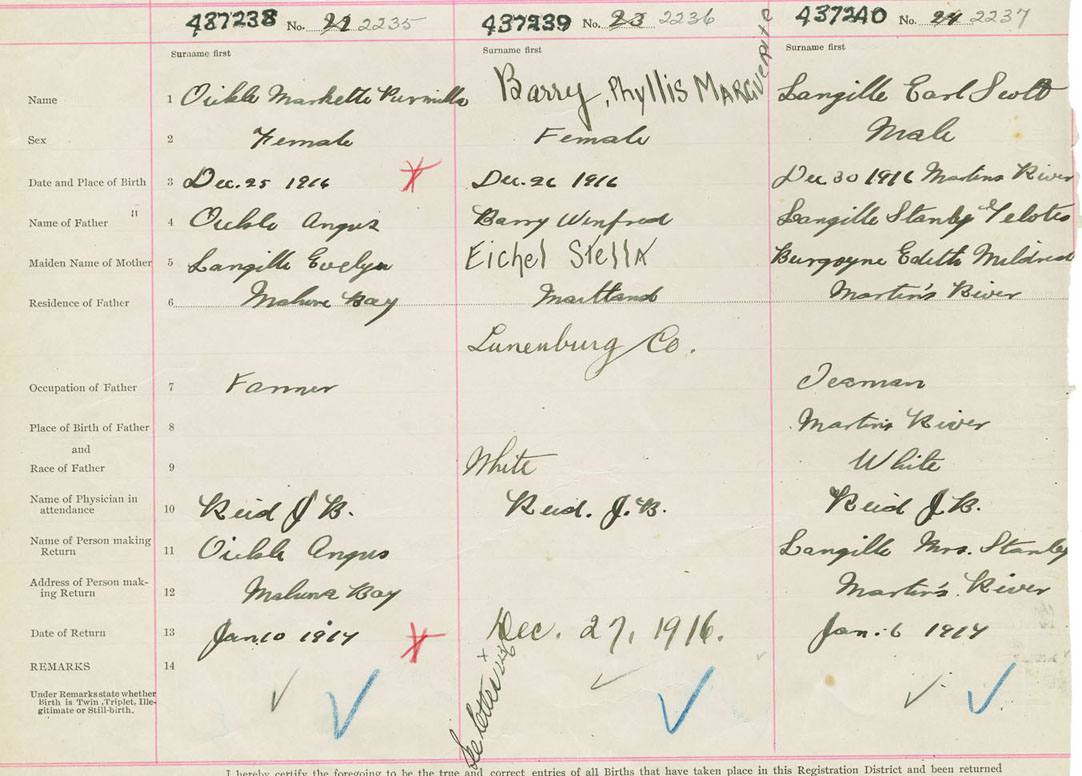 437238 No. 21 2235 437239 No. 23 2236 437240 No. 24 2237
Surname first Surname first Surname first
Name 1 Oickle Markette Barry, Phyllis Marguerite Langille Earl Scott
Sex 2 Female Female Male
Date and Place of Birth 3 Dec. 25 1916 Dec. 26 1916 Dec 30 1916 Martins River
Name of Father 4 Oickle Angus Barry Winfred Langille Stanley
Maiden Name of Mother 5 Langille Evelyn Eichel Stella Burgoyne Edith Mildred
Residence of Father 6 Mahone Bay Maitland Martin's River
Lunenburg Co.
Occupation of Father 7 Farmer Seaman
Place of Birth of Father 8 Martin's River
and
Race of Father 9 White White
Name of Physician in
attendance 10 Reid J B. Reid. J. B. Reid J. B.
Name of Person making
Return 11 Oickle Angus Langille Mrs. Stanley
Address of Person mak-
ing Return 12 Mahone Bay Martin's River
Date of Return 13 Jan 10 1917 Dec. 27, 1916. Jan. 6 1917
REMARKS 14
Under Remarks state whether
Birth is Twin, Triplet, Ille-
gitimate or Still-birth.
See letter
I hereby certify the foregoing to be the true and correct entries of all Births that have taken place in this Registration District and been returned